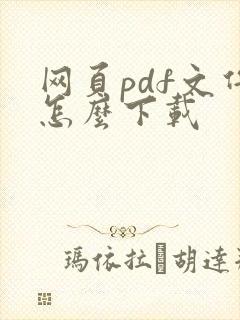 网頁pdf文件
怎麼下載
瑪依拉·胡達